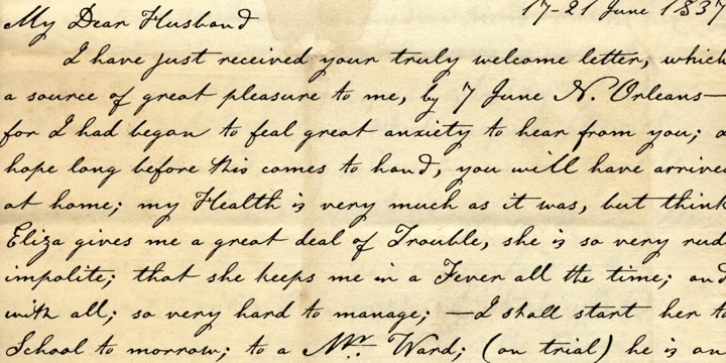 My Dear Husband 17-21 June 1837
I have just received your truly welcome letter, which
a source of great pleasure to me, by 7 June N. Orleans—
for I had began to feal great anxiety to hear from you; a
hope long before this comes to hand, you will have arrived
at home; my Health is very much as it was, but think
Eliza gives me a great deal of Trouble, she is so very rud
impolite; that she keeps me in a Fever all the time; and
with all; so very hard to manage; —I shall start her to
School to morrow; to a Mr. Ward; (on trial) he is an